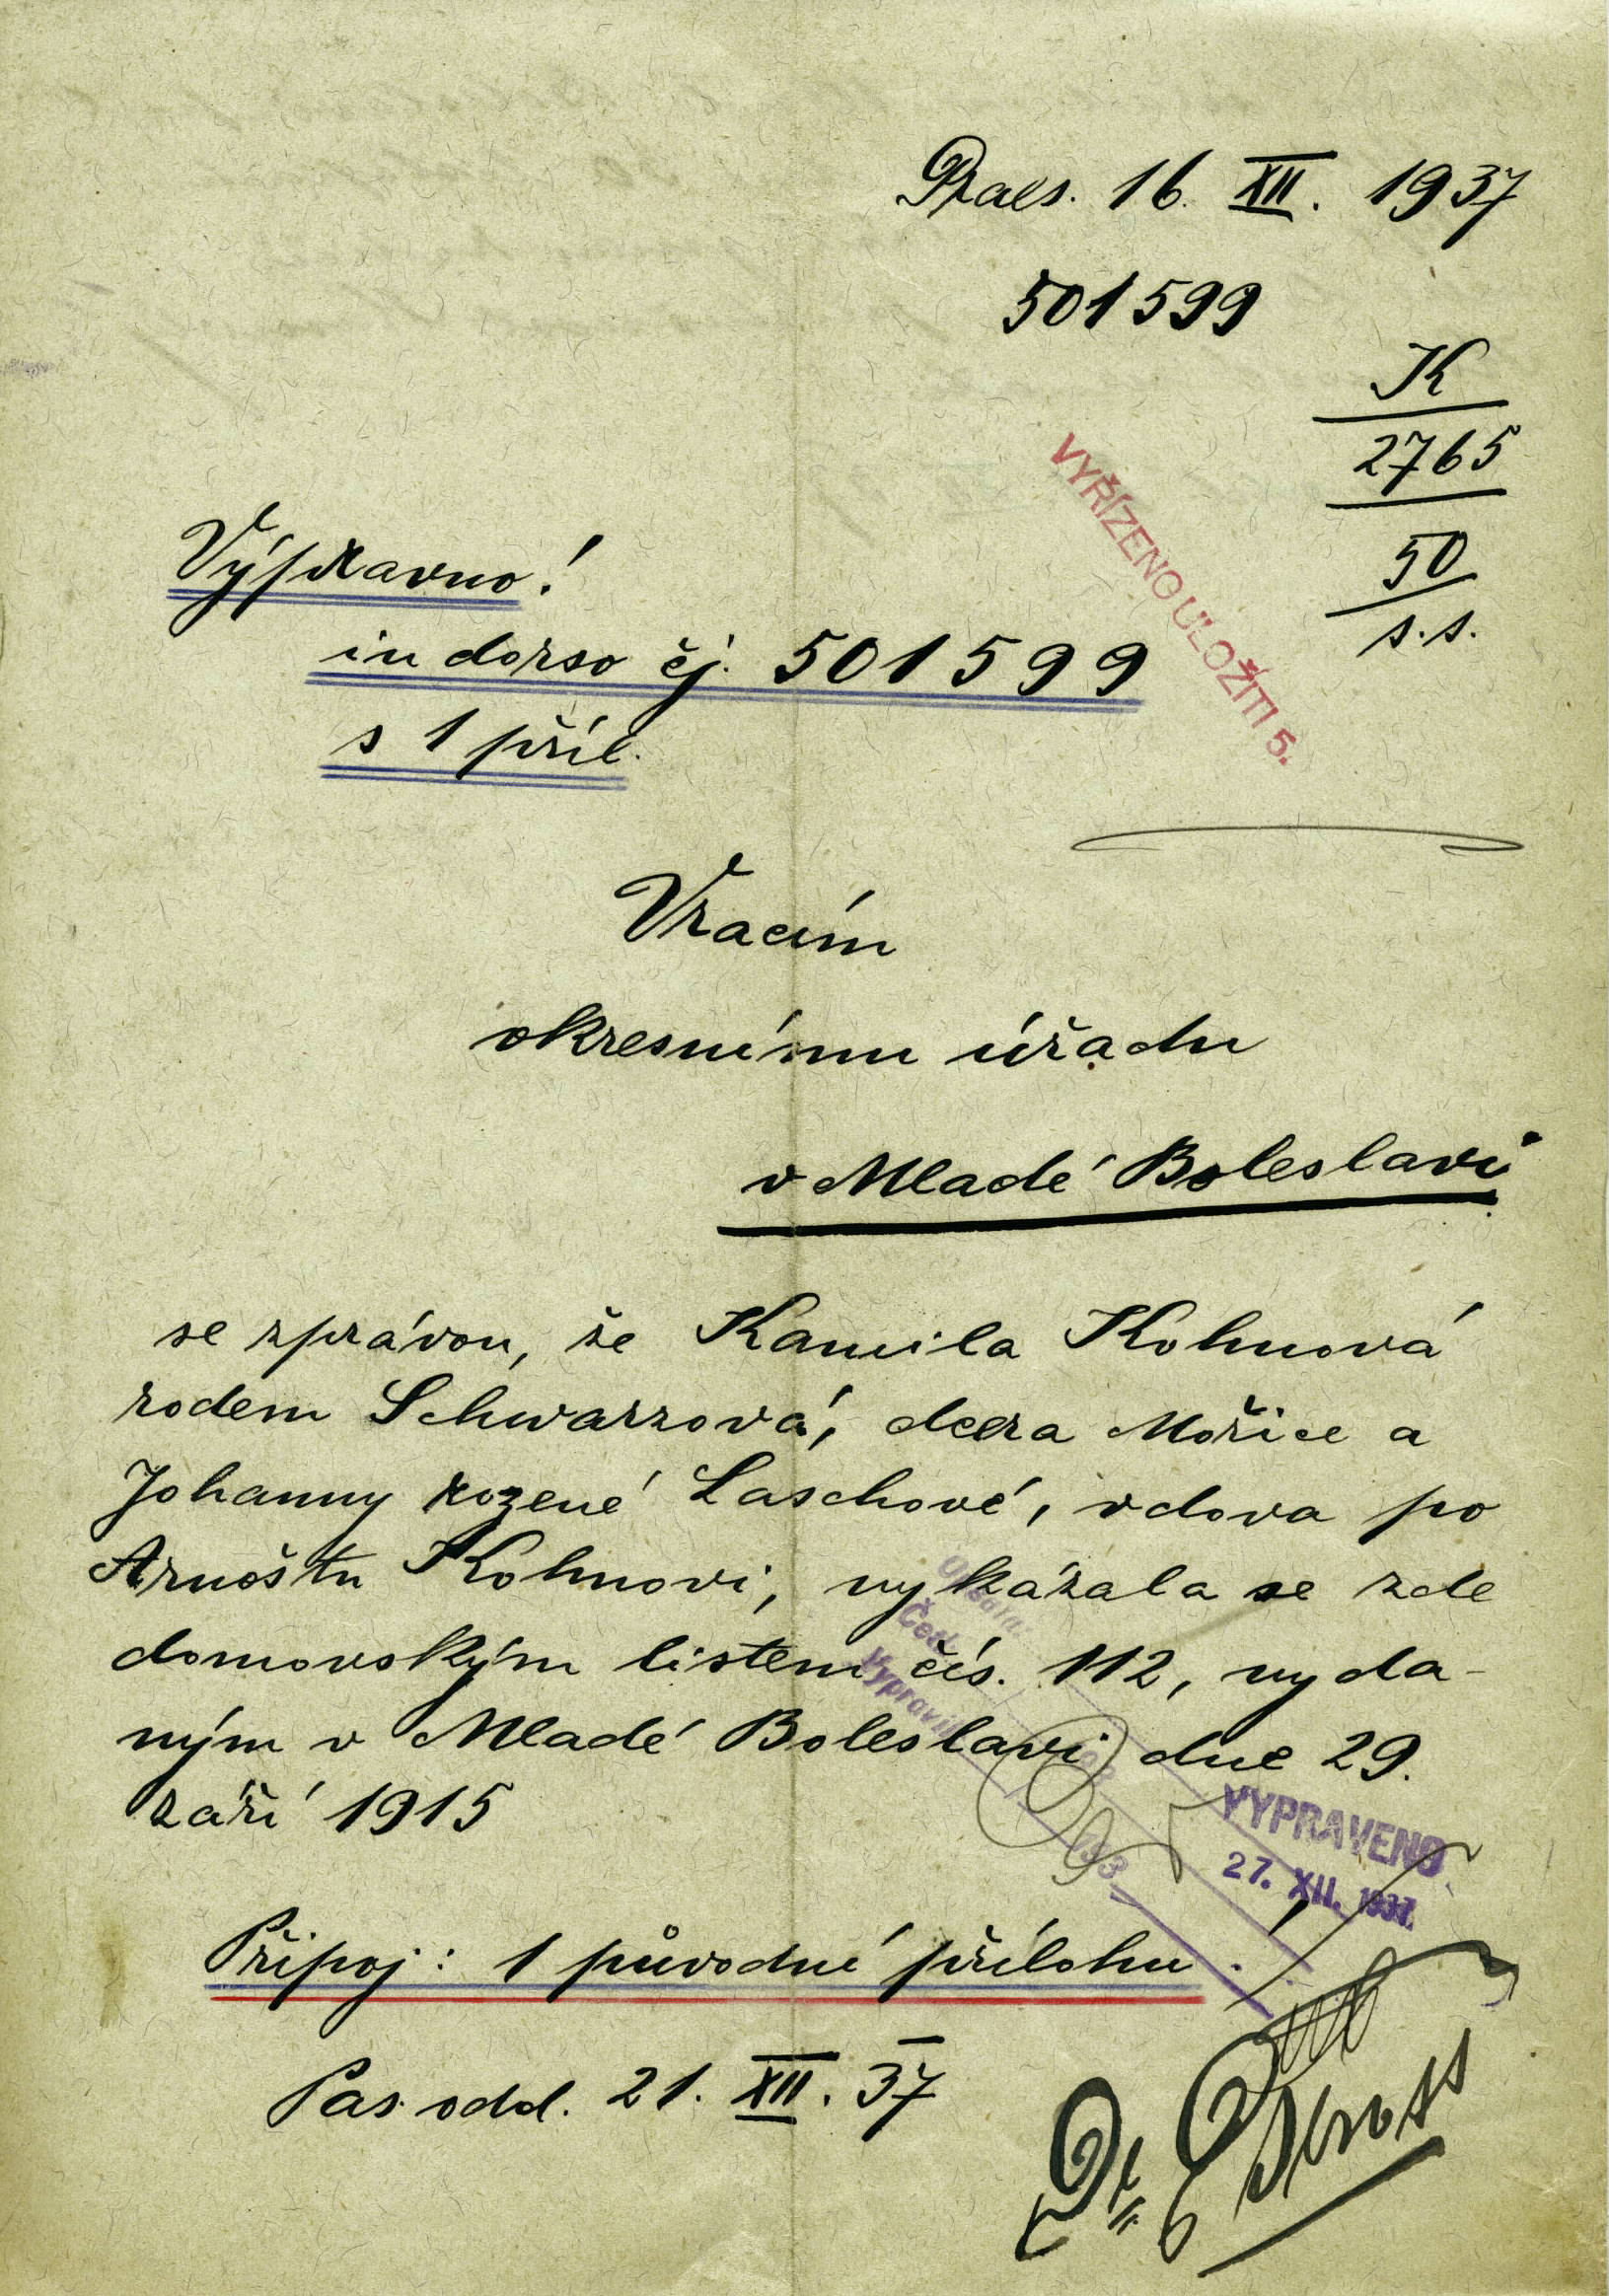 Praes. 16. XII. 1937
501599
K
2765
50
s.s.
VYŘÍZENO ULOŽITI 5.
Výpravno!
in dorso čj. 501599
s 1 příl.
Vracím
okresnímu úřadu
v Mladé Boleslavi
se zprávou, že Kamila Kohnová
rodem Schwarzová, dcera Mořice a
Johanny rozené Laschové, vdova po
Arnoštu Kohnovi, vykázala se zde
domovským listem čís. 112, vyda-
ným v Mladé Boleslavi dne 29.
září 1915
Vypravil
193
VYPRAVENO
27. XII. 1937.
Připoj: 1 původní přílohu.
Pas. odd. 21. XII. 37
Dr.